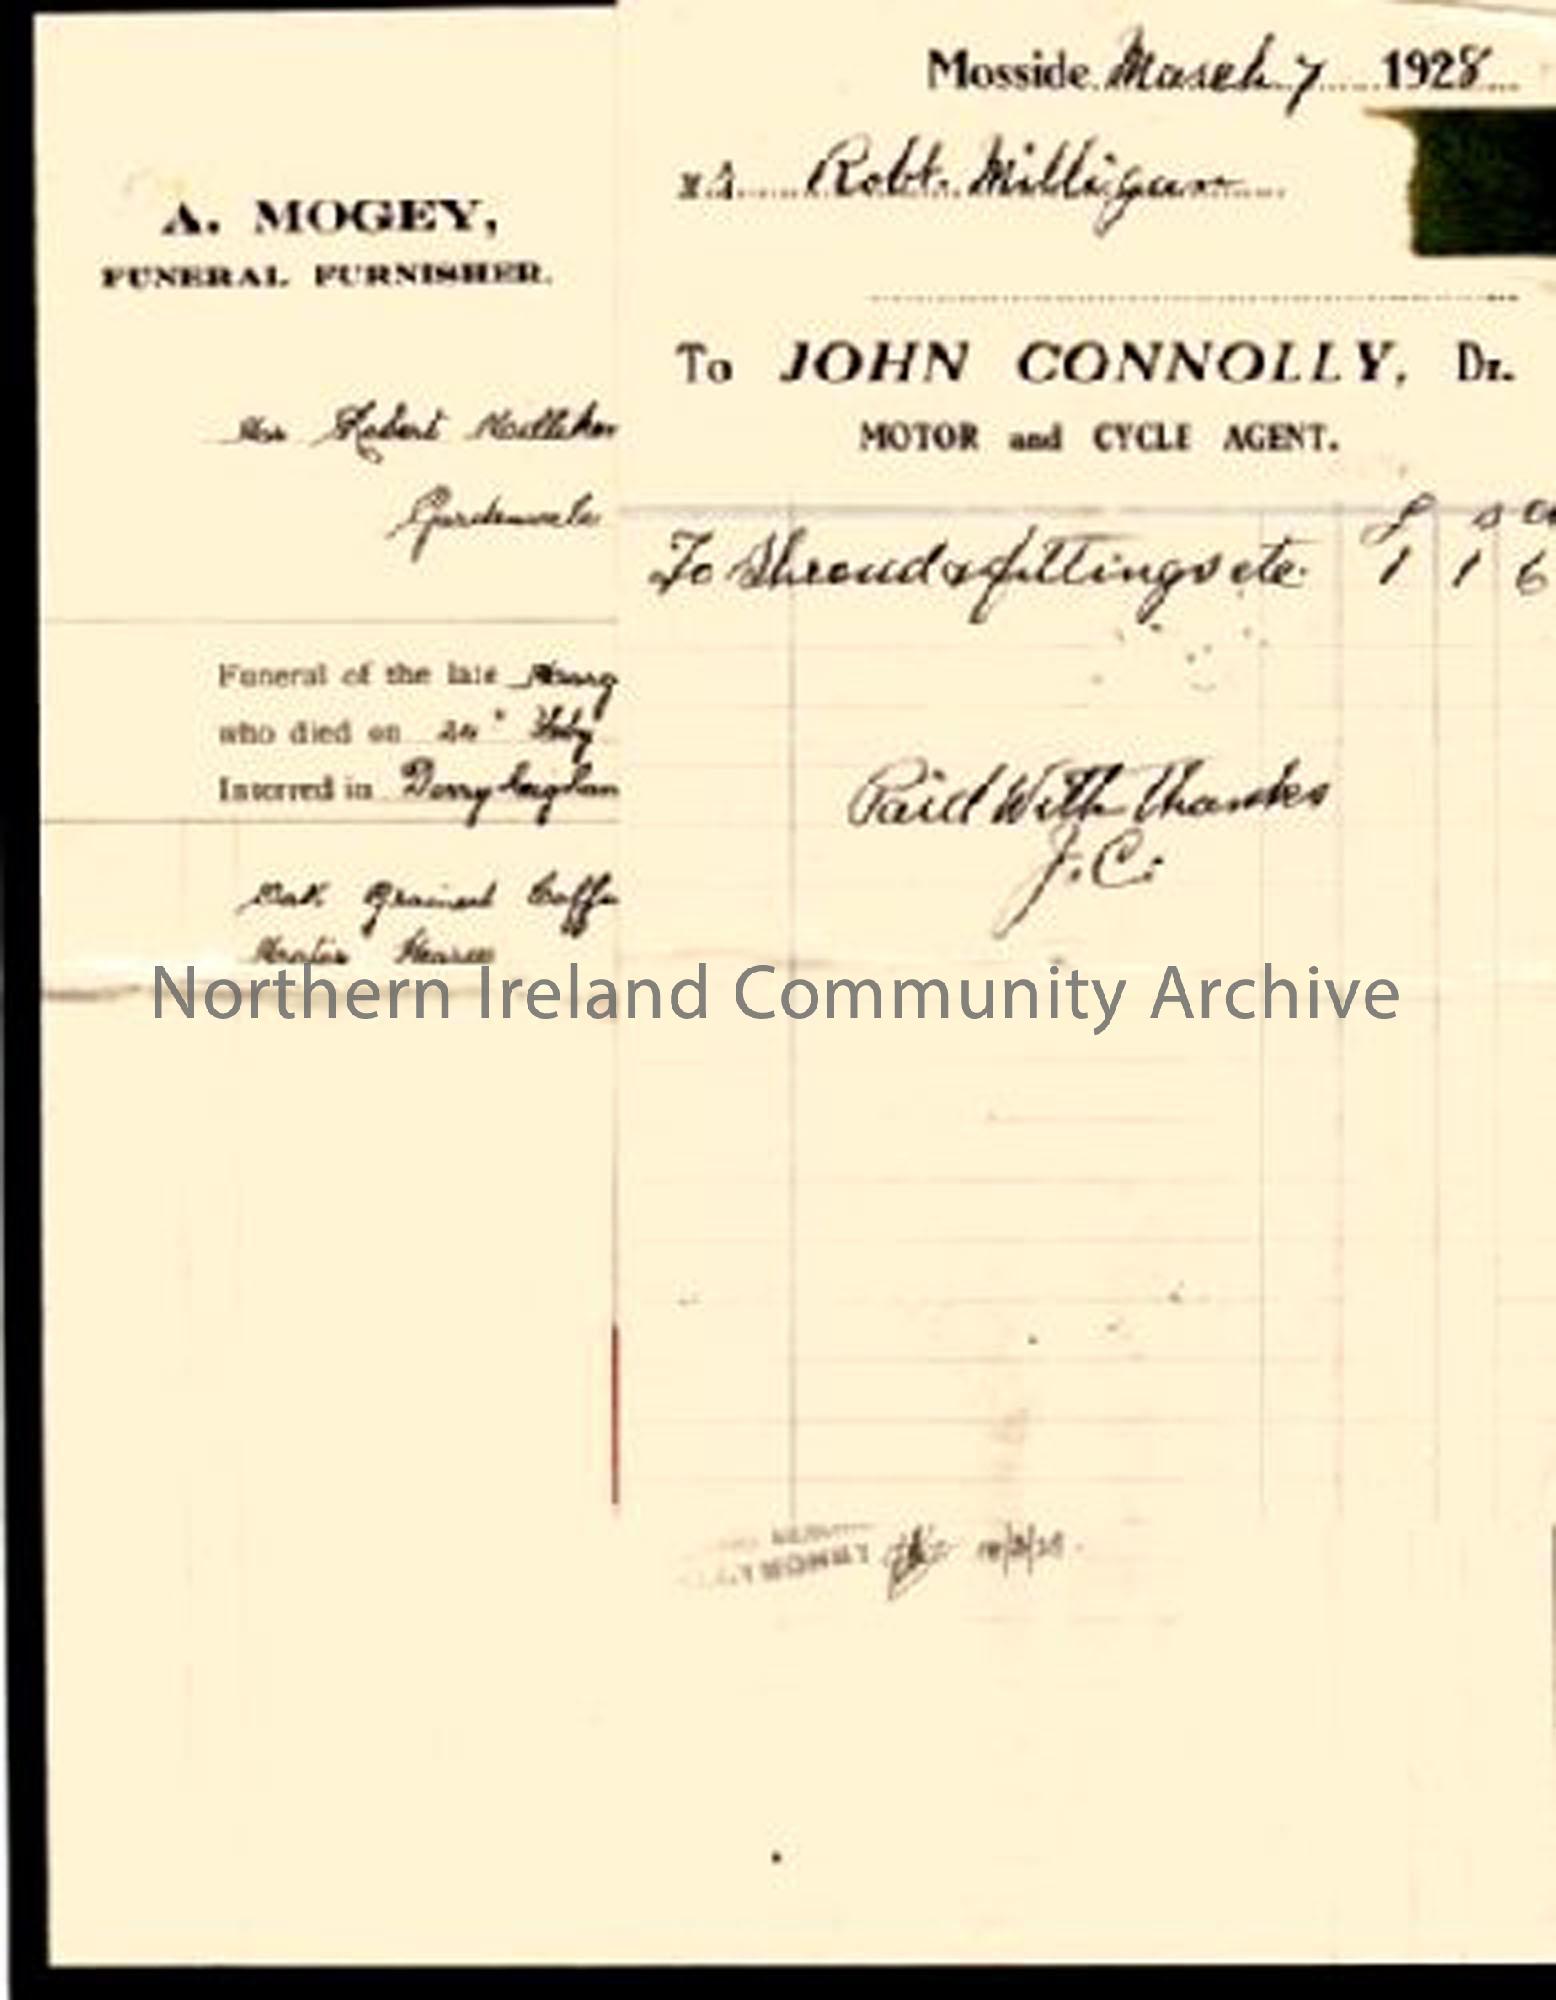 A. MOGEY,
FUNERAL FURNISHER.
Robert Milliken
Funeral of the late
who died on 24" Feby
Interred in Derrykeighan
Oak Grained Coffi
Hearse
Mosside March 7 1928
M Robt. Milligan
To JOHN CONNOLLY, Dr.
MOTOR and CYCLE AGENT.
£ s d
To Shroud & fittings etc. 1 1 6
Paid With Thanks
J. C.
Northern Ireland Community Archive